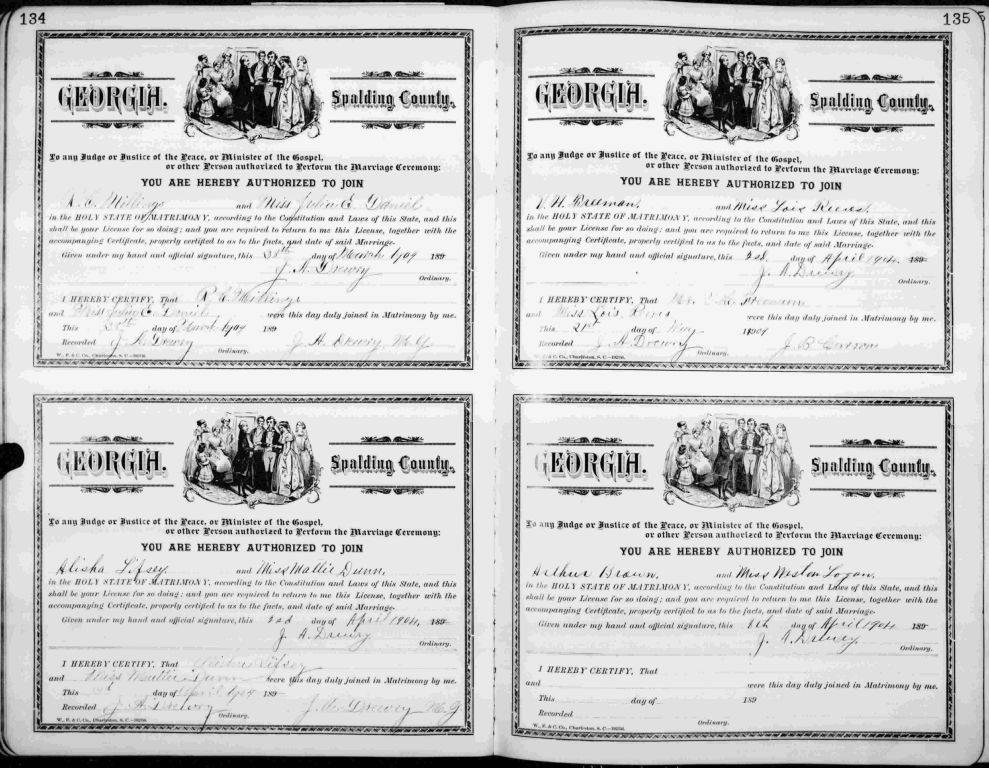 134
GEORGIA. Spalding County.
To any Judge or Justice of the Peace, or Minister of the Gospel,
or other Person authorized to Perform the Marriage Ceremony:
YOU ARE HEREBY AUTHORIZED TO JOIN
and Miss Julia E. Daniel
in the HOLY STATE OF MATRIMONY, according to the Constitution and Laws of this State, and this
shall be your License for so doing; and you are required to return to me this License, together with the
accompanying Certificate, properly certified to as to the facts, and date of said Marriage.
Given under my hand and official signature, this day of March 1904 189
J. A. Drewry
Ordinary.
I HEREBY CERTIFY, That
and Miss Julia E. Daniel were this day duly joined in Matrimony by me.
This day of March 1904 189
Recorded J. A. Drewry J. A. Drewry M.G.
Ordinary.
W., E. & C. Co., Charleston, S. C.—39256.
GEORGIA. Spalding County.
To any Judge or Justice of the Peace, or Minister of the Gospel,
or other Person authorized to Perform the Marriage Ceremony:
YOU ARE HEREBY AUTHORIZED TO JOIN
Alisha Lifsey, and Miss Mallie Dunn,
in the HOLY STATE OF MATRIMONY, according to the Constitution and Laws of this State, and this
shall be your License for so doing; and you are required to return to me this License, together with the
accompanying Certificate, properly certified to as to the facts, and date of said Marriage.
Given under my hand and official signature, this 2nd day of April 1904, 189
J. A. Drewry
Ordinary.
I HEREBY CERTIFY, That Lifsey
and Miss Mallie Dunn were this day duly joined in Matrimony by me.
This day of April 1904 189
Recorded J. A. Drewry J. A. Drewry M.G
Ordinary.
W., E. & C. Co., Charleston, S. C.—39256.
135
GEORGIA. Spalding County.
To any Judge or Justice of the Peace, or Minister of the Gospel,
or other Person authorized to Perform the Marriage Ceremony:
YOU ARE HEREBY AUTHORIZED TO JOIN
and Miss Lois Reeves,
in the HOLY STATE OF MATRIMONY, according to the Constitution and Laws of this State, and this
shall be your License for so doing; and you are required to return to me this License, together with the
accompanying Certificate, properly certified to as to the facts, and date of said Marriage.
Given under my hand and official signature, this 2nd, day of April 1904, 189
J. A. Drewry
Ordinary.
I HEREBY CERTIFY, That Mr.
and Miss Lois were this day duly joined in Matrimony by me.
This 21st day of 1904
Recorded J. A. Drewry J. B.
Ordinary.
W., E. & C. Co., Charleston, S. C.—39256.
GEORGIA. Spalding County.
To any Judge or Justice of the Peace, or Minister of the Gospel,
or other Person authorized to Perform the Marriage Ceremony:
YOU ARE HEREBY AUTHORIZED TO JOIN
Arthur Brown, and Miss Weston Logan,
in the HOLY STATE OF MATRIMONY, according to the Constitution and Laws of this State, and this
shall be your License for so doing; and you are required to return to me this License, together with the
accompanying Certificate, properly certified to as to the facts, and date of said Marriage.
Given under my hand and official signature, this day of April 1904 189
J. A. Drewry,
Ordinary.
I HEREBY CERTIFY, That
and were this day duly joined in Matrimony by me.
This day of 189
Recorded
Ordinary.
W., E. & C. Co., Charleston, S. C.—39256.